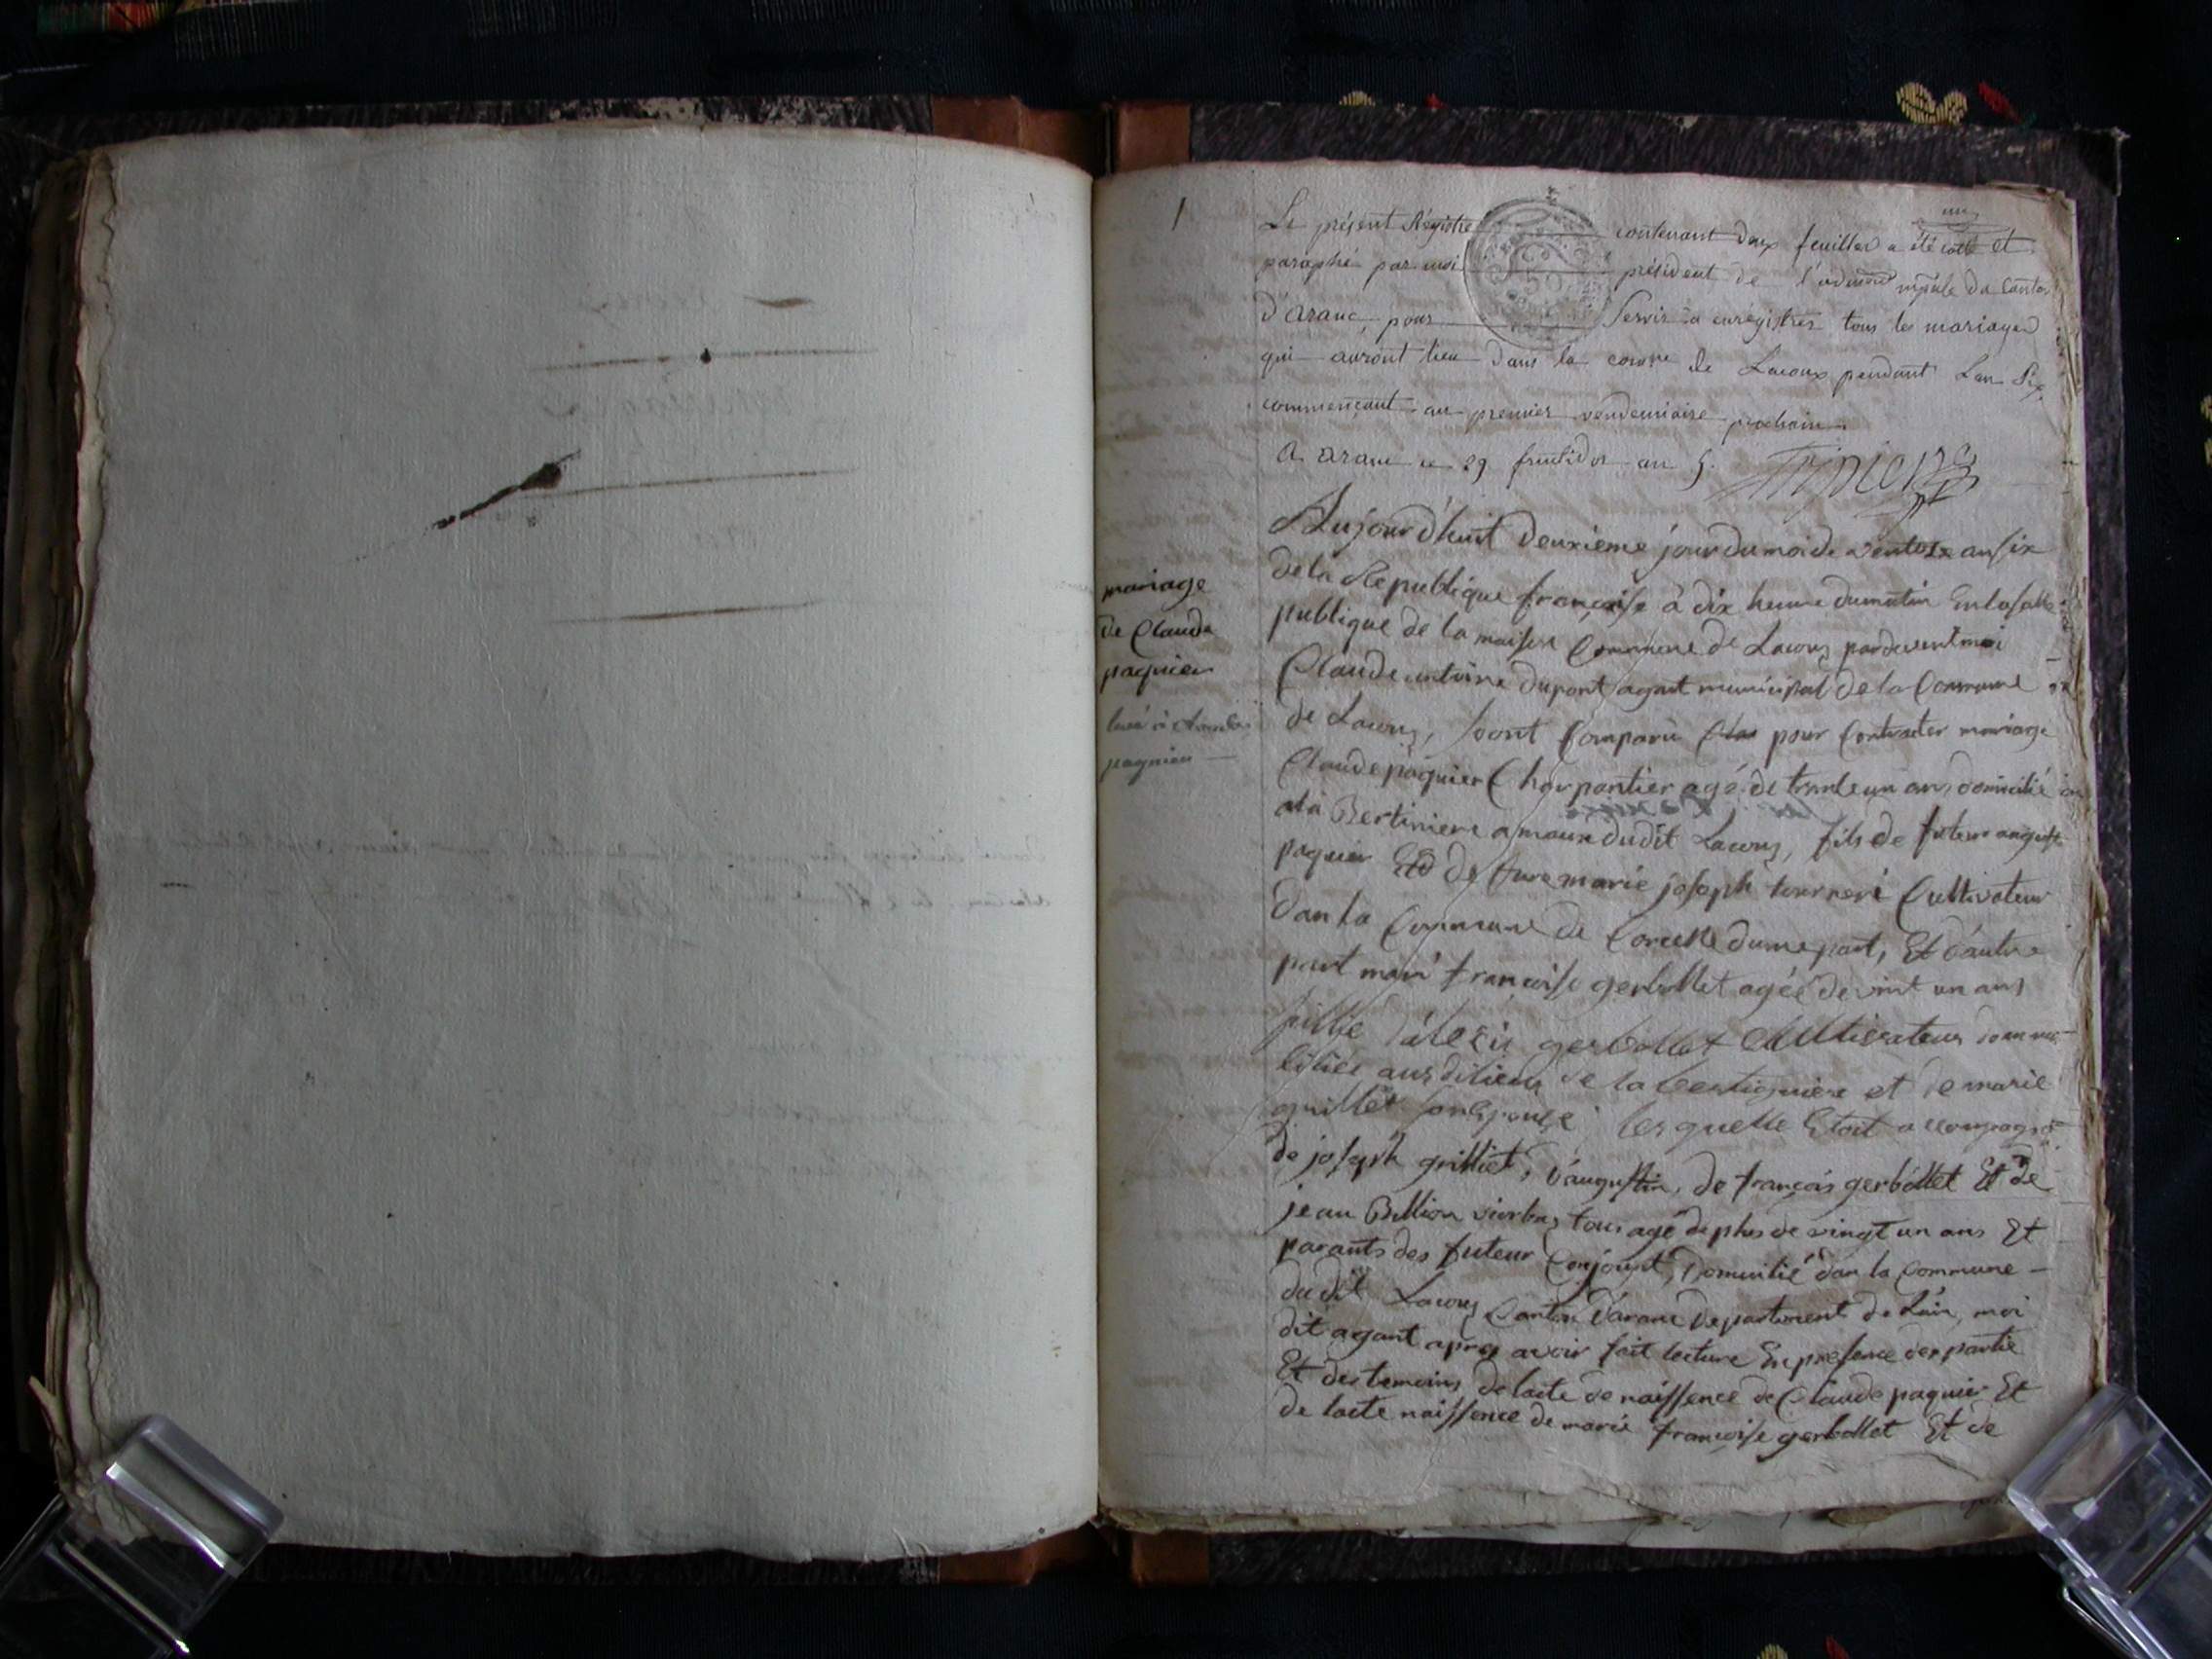 1
un
Le présent Régistre contenant deux feuilles a été coté et
paraphé par moi président de l'admon mpale du Canton
d'aranc, pour Servir a enrégistrer tous les mariages
qui auront lieu dans la comne de Lacoux pendant Lan Six
commençant au premier vendemiaire prochain
a aranc ce 29 fructidor an 5.
mariage
de Claude
paquier
Aujourd'huit deuxieme jour du moi de ventose an six
de la Republique françoise à dix heure du matin En la salle
publique de la maison Commune de Lacoux pardevent moi
Claude antoine dupont agant municipal de la Commune
de Lacoux, sont Comparu pour Contracter mariage
Claude paquier Charpantier agé de trente un ans domicilié
a la Bertiniere amaux dudit Lacoux, fils de
paquier Et de marie joseph tourneri Cultivateur
dan la Commune de Corcelle dune part, Et d'autre
part mari francoise gerbollet agéé de vint un ans
fillie d'alexis gerbollet Cultivateur
de la bertigniere et de marie
grilliet son Epouse lesquelle Etoit accompagné
de joseph grilliet, d'augustin, de françois gerbollet Et de
jean Billion tous agé de plus de vingt un ans Et
parants des futeur Conjoint, Domicilié dan la Commune
du dit Lacoux Canton d'aranc departement de Lain, moi
dit agant apres avoir fait lecture En presence des partie
Et des temoins de lacte de naissence de Claude paquier Et
de lacte naissence de marie francoise gerbollet Et de